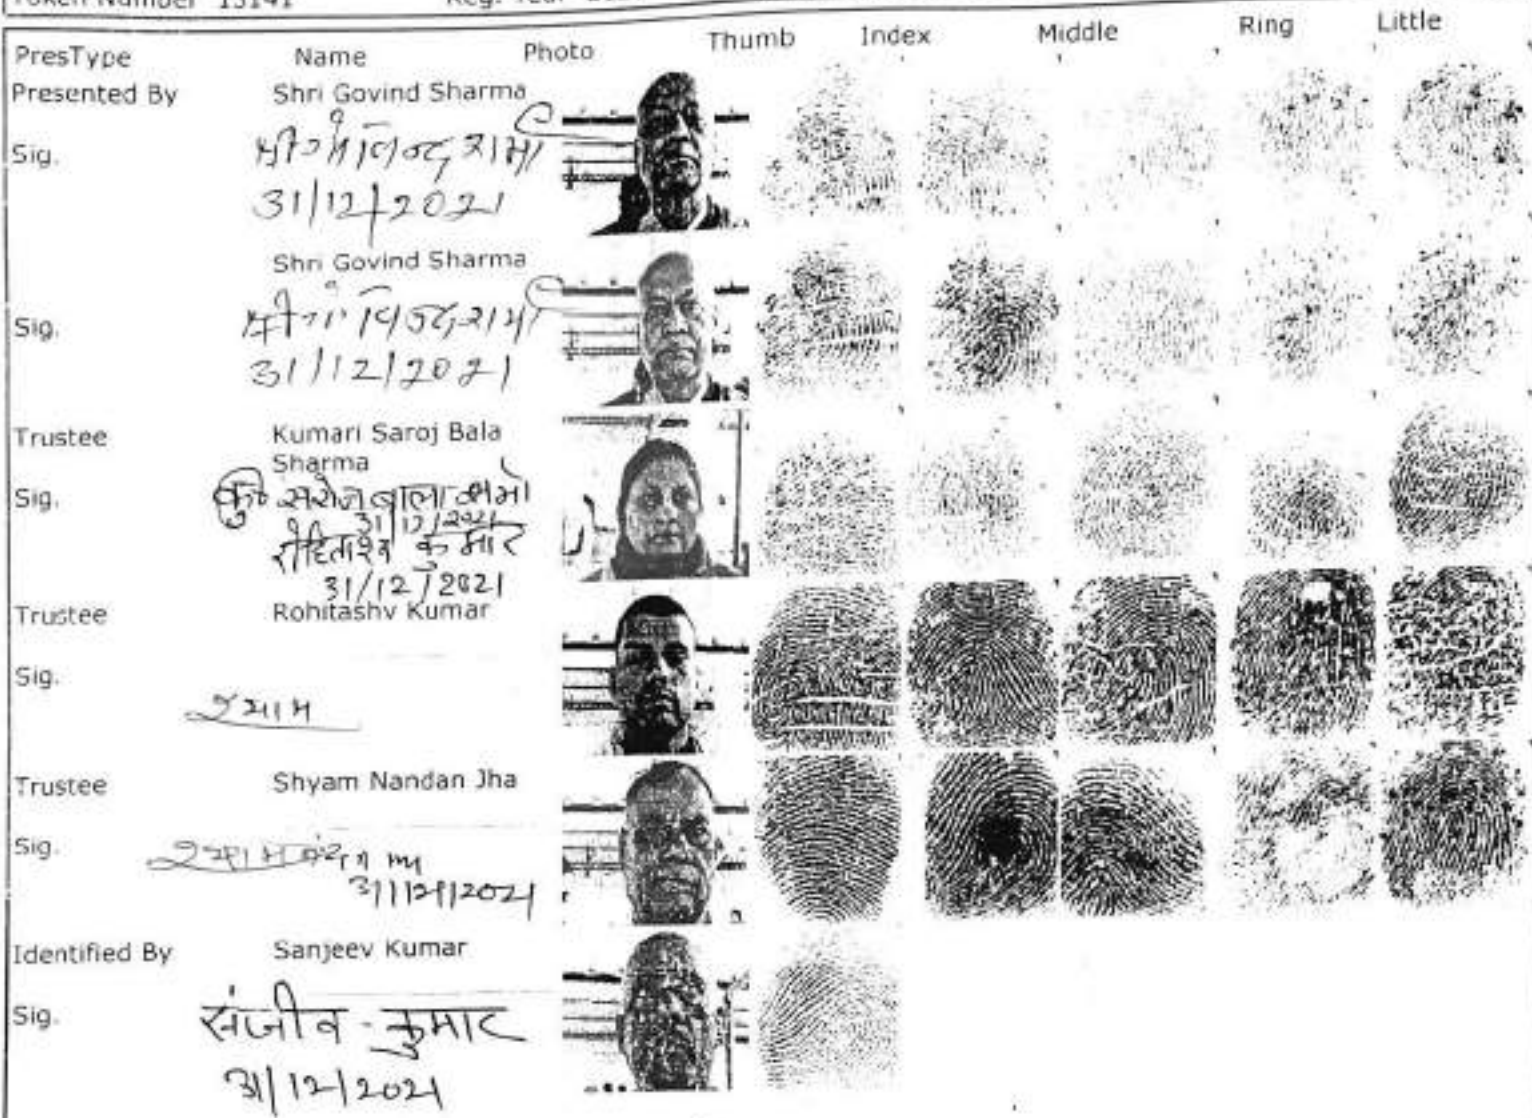 Token Number 13141 Reg. Year
PresType Name Photo Thumb Index Middle Ring Little
Presented By Shri Govind Sharma
Sig. श्री गोविन्द शर्मा
31/12/2021
Shri Govind Sharma
Sig. श्री गोविन्द शर्मा
31/12/2021
Trustee Kumari Saroj Bala
Sharma
Sig. कु० सरोज बाला शर्मा
31/12/2021
रोहिताश्व कुमार
31/12/2021
Trustee Rohitashv Kumar
Sig.
श्याम
Trustee Shyam Nandan Jha
Sig. श्याम नंदन झा
31/12/2021
Identified By Sanjeev Kumar
Sig. संजीव - कुमार
31/12/2021